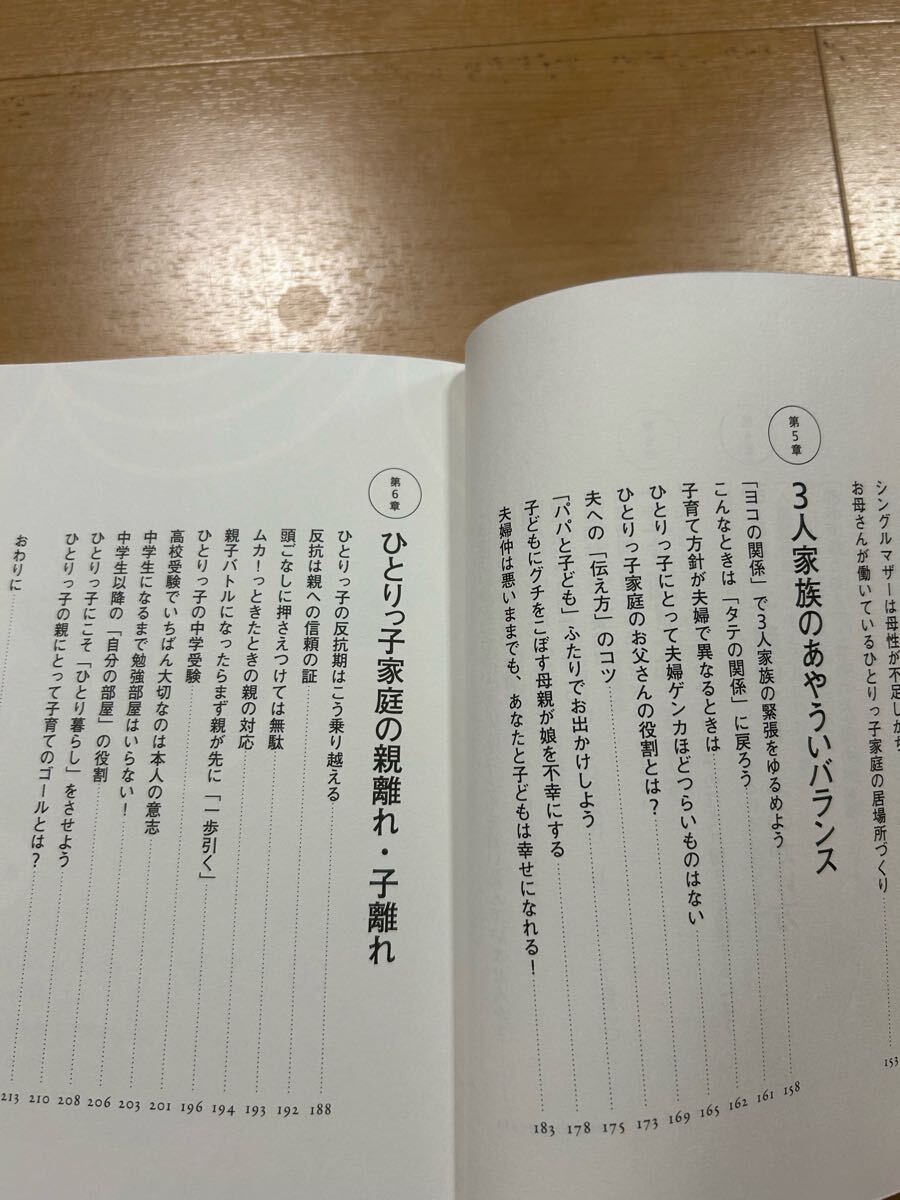 シングルマザーは母性が不足しがち
お母さんが働いているひとりっ子家庭の居場所づくり 153
第5章
3人家族のあやういバランス
「ヨコの関係」で3人家族の緊張をゆるめよう 158
こんなときは「タテの関係」に戻ろう 161
子育て方針が夫婦で異なるときは 162
ひとりっ子にとって夫婦ゲンカほどつらいものはない 165
ひとりっ子家庭のお父さんの役割とは？ 169
夫への「伝え方」のコツ 173
「パパと子ども」ふたりでお出かけしよう 175
子どもにグチをこぼす母親が娘を不幸にする 178
夫婦仲は悪いままでも、あなたと子どもは幸せになれる！ 183
第6章
ひとりっ子家庭の親離れ・子離れ
ひとりっ子の反抗期はこう乗り越える 188
反抗は親への信頼の証 192
頭ごなしに押さえつけては無駄 193
ムカ！っときたときの親の対応 194
親子バトルになったらまず親が先に「一歩引く」 196
ひとりっ子の中学受験 201
高校受験でいちばん大切なのは本人の意志 203
中学生になるまで勉強部屋はいらない！ 206
中学生以降の「自分の部屋」の役割 208
ひとりっ子にこそ「ひとり暮らし」をさせよう 210
ひとりっ子の親にとって子育てのゴールとは？ 213
おわりに